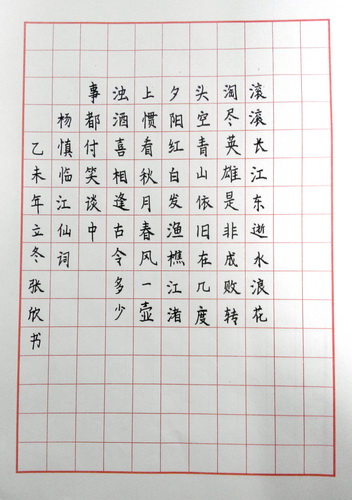 滚滚长江东逝水浪花
淘尽英雄是非成败转
头空青山依旧在几度
夕阳红白发渔樵江渚
上惯看秋月春风一壶
浊酒喜相逢古今多少
事都付笑谈中
杨慎临江仙词
乙未年立冬张欣书